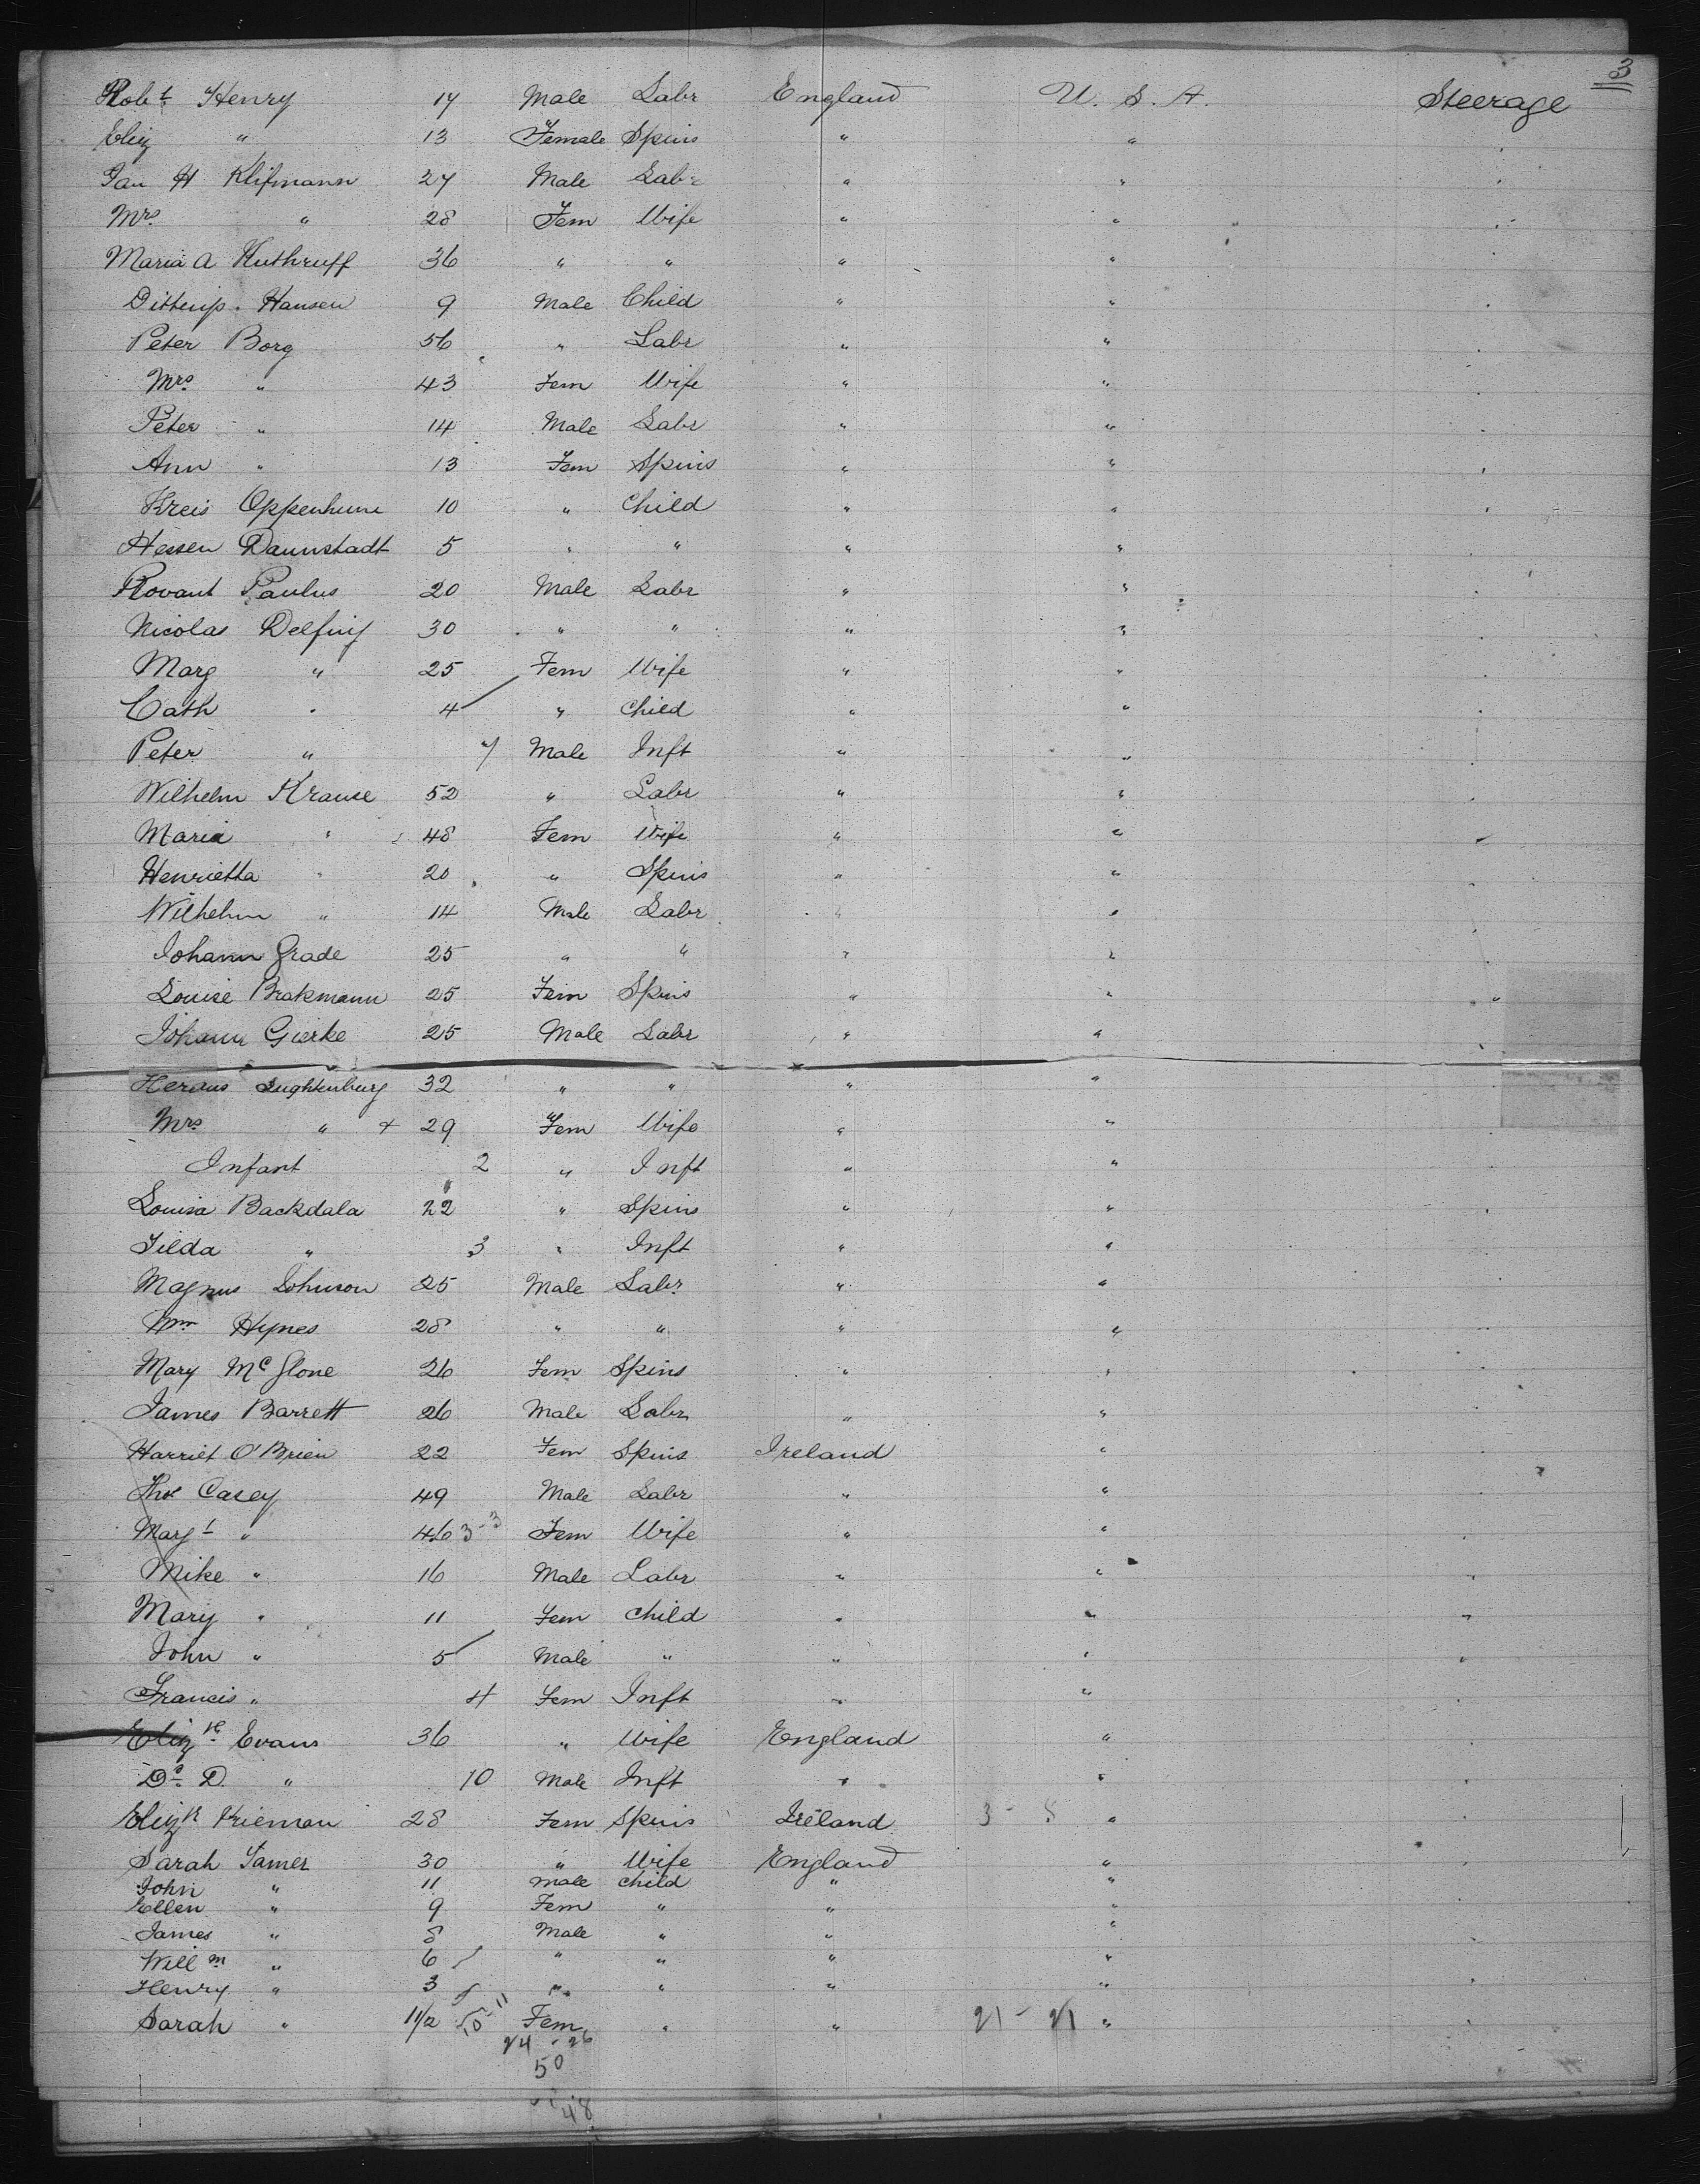 3
Robt Henry 17 Male Labr England U. S. A. Steerage
Eliz " 13 Female Spins " "
Jan H Klifmann 27 Male Labr " "
Mrs " 28 Fem Wife " "
Maria A Kuthruff 36 " " " "
Dittrip. Hansen 9 Male Child " "
Peter Borg 56 " Labr " "
Mrs " 43 Fem Wife " "
Peter " 14 Male Labr " "
Ann " 13 Fem Spins " "
Kreis Oppenheim 10 " Child " "
Hessen Daunstadt 5 " " " "
Rovant Paulus 20 Male Labr " "
Nicolas Delfing 30 " " " "
Marg " 25 Fem Wife " "
Cath " 4 " Child " "
Peter " Male Inft " "
Wilhelm Krause 52 " Labr " "
Maria " 48 Fem Wife " "
Henrietta " 20 " Spins " "
Wilhelm " 14 Male Labr " "
Johann Grade 25 " " " "
Louise Brakmann 25 Fem Spins " "
Johann Gierke 25 Male Labr " "
Heraus Lughtenburg 32 " " " "
Mrs " + 29 Fem Wife " "
Infant 2 " Inft " "
Louisa Backdala 22 " Spins " "
Tilda " 3 " Inft " "
Magnus Johnson 25 Male Labr " "
Wm Hynes 28 " " " "
Mary McGlone 26 Fem Spins " "
James Barrett 26 Male Labr " "
Harriet O'Brien 22 Fem Spins Ireland "
Thos Casey 49 Male Labr " "
Margt " 46 3-3 Fem Wife " "
Mike " 16 Male Labr " "
Mary " 11 Fem Child " "
John " 5 Male " " "
Francis " 4 Fem Inft " "
Elizth Evans 36 " Wife England "
Do D. " 10 Male Inft " "
Elizth Kiernan 28 Fem Spins Ireland 3 - 8 "
Sarah James 30 " Wife England "
John " 11 Male Child " "
Ellen " 9 Fem " " "
James " 8 Male " " "
Willm " 6 " " " "
Henry " 3 " " " "
Sarah " 11/2 Fem " " 21 - 21 "
24 - 26
50
48